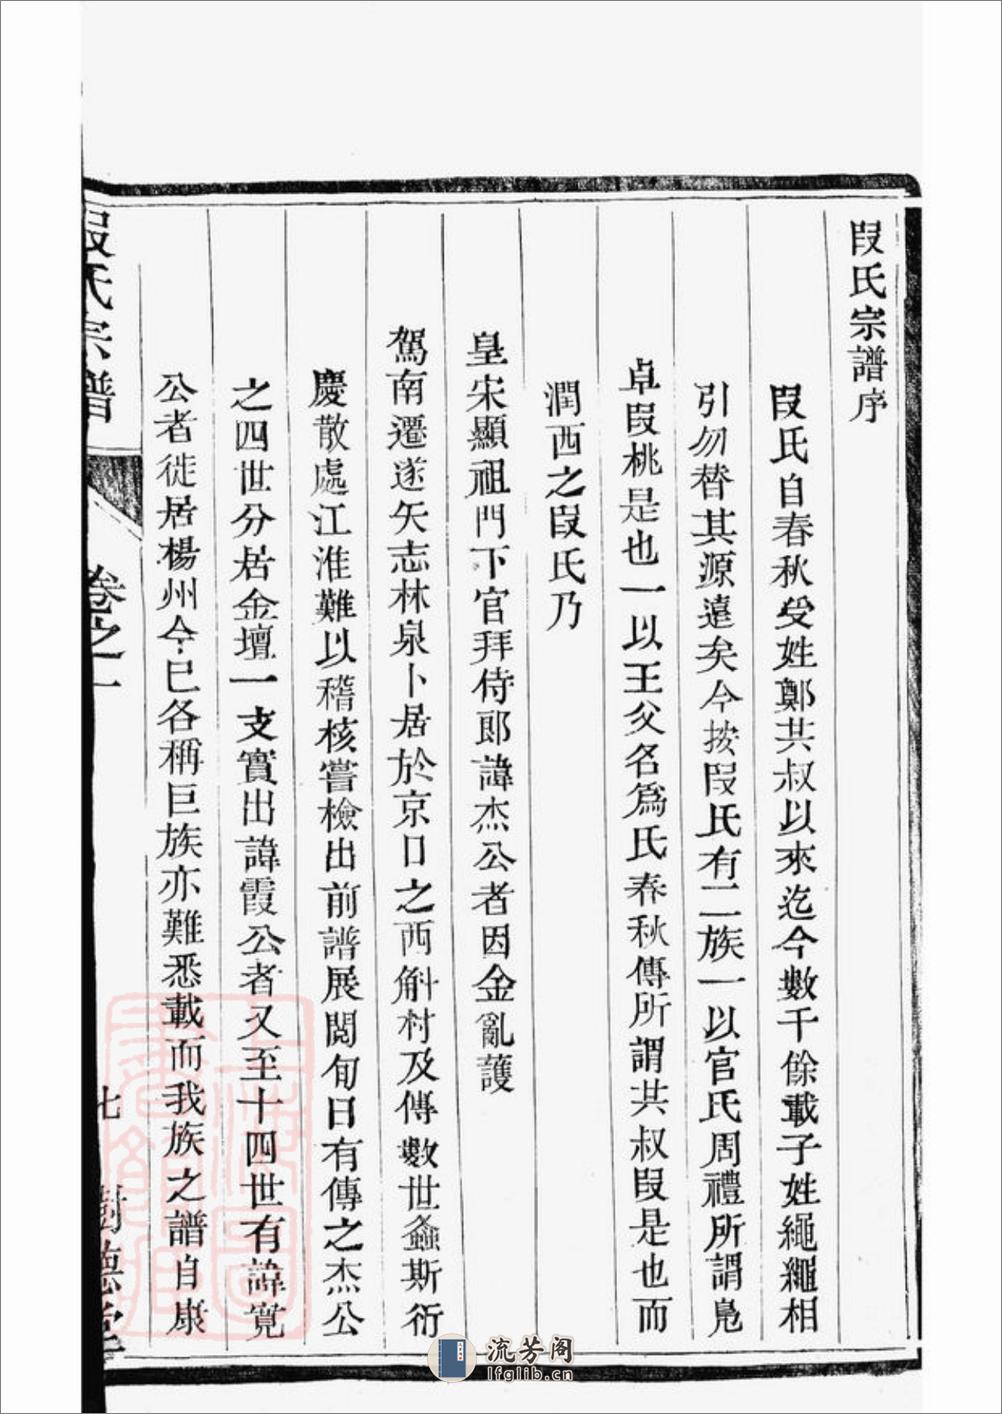 段氏宗譜序
段氏自春秋受姓鄭共叔以來迄今數千餘載子姓繩繩相
引勿替其源遠矣今按段氏有二族一以官氏周禮所謂鳧
卓段桃是也一以王父名爲氏春秋傳所謂共叔段是也而
潤西之段氏乃
皇宋顯祖門下官拜侍郎諱杰公者因金亂護
駕南遷遂矢志林泉卜居於京口之西斛村及傳數世螽斯衍
慶散處江淮難以稽核嘗檢出前譜展閱旬日有傳之杰公
之四世分居金壇一支實出諱霞公者又至十四世有諱寬
公者徙居楊州今已各稱巨族亦難悉載而我族之譜自康
段氏宗譜
卷之一
七
樹德堂
流芳阁
lfglib.cn